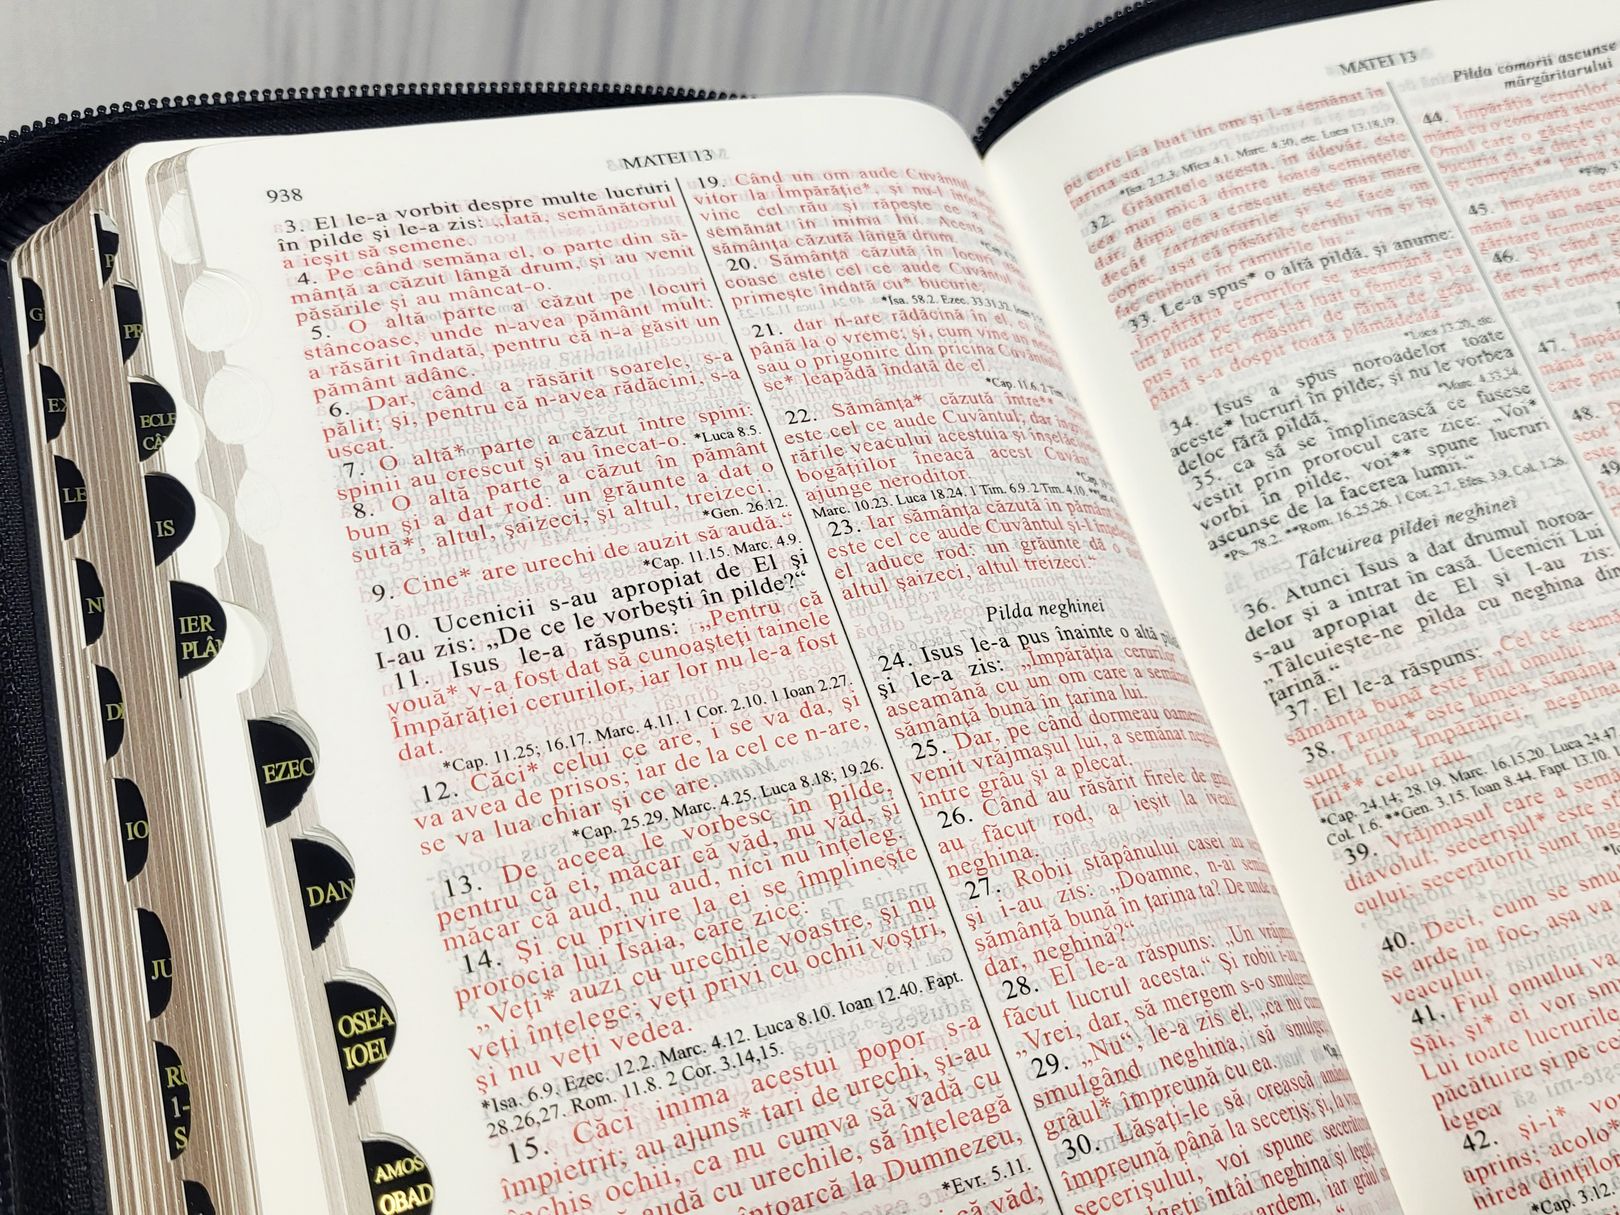 G
EX
LE
JU
PR
ECLE
IS
IER
EZEC
DAN
OSEA
IOEL
AMOS
OBAD
938
MATEI 13
3. El le-a vorbit despre multe lucruri
în pilde şi le-a zis: „Iată, semănătorul
a ieşit să semene.
4. Pe când semăna el, o parte din să-
mânţă a căzut lângă drum, şi au venit
păsările şi au mâncat-o.
5. O altă parte a căzut pe locuri
stâncoase, unde n-avea pământ mult:
a răsărit îndată, pentru că n-a găsit un
pământ adânc.
6. Dar, când a răsărit soarele, s-a
pălit; şi, pentru că n-avea rădăcini, s-a
uscat.
7. O altă* parte a căzut între spini:
spinii au crescut şi au înecat-o. *Luca 8.5.
8. O altă parte a căzut în pământ
bun şi a dat rod: un grăunte a dat o
sută*, altul, şaizeci, şi altul, treizeci.
*Gen. 26.12.
9. Cine* are urechi de auzit să audă.“
*Cap. 11.15. Marc. 4.9.
10. Ucenicii s-au apropiat de El şi
I-au zis: „De ce le vorbeşti în pilde?“
11. Isus le-a răspuns: „Pentru că
vouă* v-a fost dat să cunoaşteţi tainele
Împărăţiei cerurilor, iar lor nu le-a fost
dat.
*Cap. 11.25; 16.17. Marc. 4.11. 1 Cor. 2.10. 1 Ioan 2.27.
12. Căci* celui ce are, i se va da, şi
va avea de prisos; iar de la cel ce n-are,
se va lua chiar şi ce are.
*Cap. 25.29. Marc. 4.25. Luca 8.18; 19.26.
13. De aceea le vorbesc în pilde,
pentru că ei, măcar că văd, nu văd, şi
măcar că aud, nu aud, nici nu înţeleg.
14. Şi cu privire la ei se împlineşte
prorocia lui Isaia, care zice:
„Veţi* auzi cu urechile voastre, şi nu
veţi înţelege; veţi privi cu ochii voştri,
şi nu veţi vedea.
*Isa. 6.9. Ezec. 12.2. Marc. 4.12. Luca 8.10. Ioan 12.40. Fapt.
28.26,27. Rom. 11.8. 2 Cor. 3.14,15.
15. Căci inima acestui popor s-a
împietrit; au ajuns* tari de urechi, şi-au
închis ochii, ca nu cumva să vadă cu
audă cu urechile, să înţeleagă
întoarcă la Dumnezeu,
*Evr. 5.11.
că văd;
19. Când un om aude Cuvântul
vitor la Împărăţie*, şi nu-l
vine cel rău şi răpeşte ce a
semănat în inima lui. Acesta
sămânţa căzută lângă drum.
20. Sămânţa căzută în locuri
coase este cel ce aude Cuvântul
primeşte îndată cu* bucurie;
*Isa. 58.2. Ezec. 33.31,32.
21. dar n-are rădăcină în el, ci
până la o vreme; şi, cum vine un
sau o prigonire din pricina Cuvântului
se* leapădă îndată de el.
*Cap. 11.6.
22. Sămânţa* căzută între**
este cel ce aude Cuvântul; dar
rările veacului acestuia şi
bogăţiilor îneacă acest
ajunge neroditor.
Marc. 10.23. Luca 18.24. 1 Tim. 6.9. 2 Tim. 4.10.
23. Iar sămânţa căzută în pământ
este cel ce aude Cuvântul şi-l
el aduce rod: un grăunte dă o
altul şaizeci, altul treizeci.“
Pilda neghinei
24. Isus le-a pus înainte o altă
şi le-a zis: „Împărăţia cerurilor
aseamănă cu un om care a semănat
sămânţă bună în ţarina lui.
25. Dar, pe când dormeau oamenii,
venit vrăjmaşul lui, a semănat
între grâu şi a plecat.
26. Când au răsărit firele de
au făcut rod, a ieşit la
neghina.
27. Robii stăpânului casei au
şi i-au zis: „Doamne, n-ai
sămânţă bună în ţarina ta? De unde
dar, neghină?“
28. El le-a răspuns: „Un
făcut lucrul acesta.“ Şi robii
„Vrei, dar, să mergem s-o smulgem
29. „Nu“, le-a zis el, „ca nu
smulgând neghina, să
grâul* împreună cu ea.
30. Lăsaţi-le să crească
împreună până la seceriş; şi, la
secerişului, voi spune
întâi neghina şi
ardem, iar
MATEI 13
pe care l-a luat un om şi l-a semănat în
ţarina sa.
*Isa. 2.2,3. Mica 4.1. Marc. 4.30, etc. Luca 13.18,19.
32. Grăuntele acesta, în adevăr, este
cea mai mică dintre toate seminţele,
dar, după ce a crescut, este mai mare
decât zarzavaturile şi se face un
copac, aşa că păsările cerului vin şi îşi
fac cuiburi în ramurile lui.“
33. Le-a spus* o altă pildă, şi anume:
„Împărăţia cerurilor se aseamănă cu
un aluat pe care l-a luat o femeie şi l-a
pus în trei măsuri de făină de grâu
până s-a dospit toată plămădeala.“
*Luca 13.20, etc.
34. Isus a spus noroadelor toate
aceste* lucruri în pilde; şi nu le vorbea
deloc fără pildă,
*Marc. 4.33,34.
35. ca să se împlinească ce fusese
vestit prin prorocul care zice: „Voi*
vorbi în pilde, voi** spune lucruri
ascunse de la facerea lumii.“
*Ps. 78.2. **Rom. 16.25,26. 1 Cor. 2.7. Efes. 3.9. Col. 1.26.
Tâlcuirea pildei neghinei
36. Atunci Isus a dat drumul noroa-
delor şi a intrat în casă. Ucenicii Lui
s-au apropiat de El şi I-au zis:
„Tâlcuieşte-ne pilda cu neghina din
ţarină.“
37. El le-a răspuns: „Cel ce
sămânţa bună este Fiul omului.
38. Ţarina* este lumea; sămânţa
sunt fiii Împărăţiei; neghina
fiii** celui rău.
*Cap. 24.14; 28.19. Marc. 16.15,20. Luca 24.47.
Col. 1.6. **Gen. 3.15. Ioan 8.44. Fapt. 13.10.
39. Vrăjmaşul care a
diavolul; secerişul* este
cului; secerătorii sunt
40. Deci, cum se
se arde în foc, aşa va
veacului.
41. Fiul omului va
Săi, şi* ei vor
Lui toate lucrurile
păcătuire şi pe
legea
42. şi-i* vor
aprins; acolo*
nirea dinţilor
*Cap. 3.12.
Pilda comorii ascunse
mărgăritarului
44. Împărăţia cerurilor
mănă cu o comoară
Omul care o găseşte o
bucuria ei, se duce şi
şi cumpără** ţarina
45. Împărăţia
mănă cu un
găritare frumoase
46. Şi, când
mare preţ,
are şi-l
47.
mănă cu
care
48.
scot